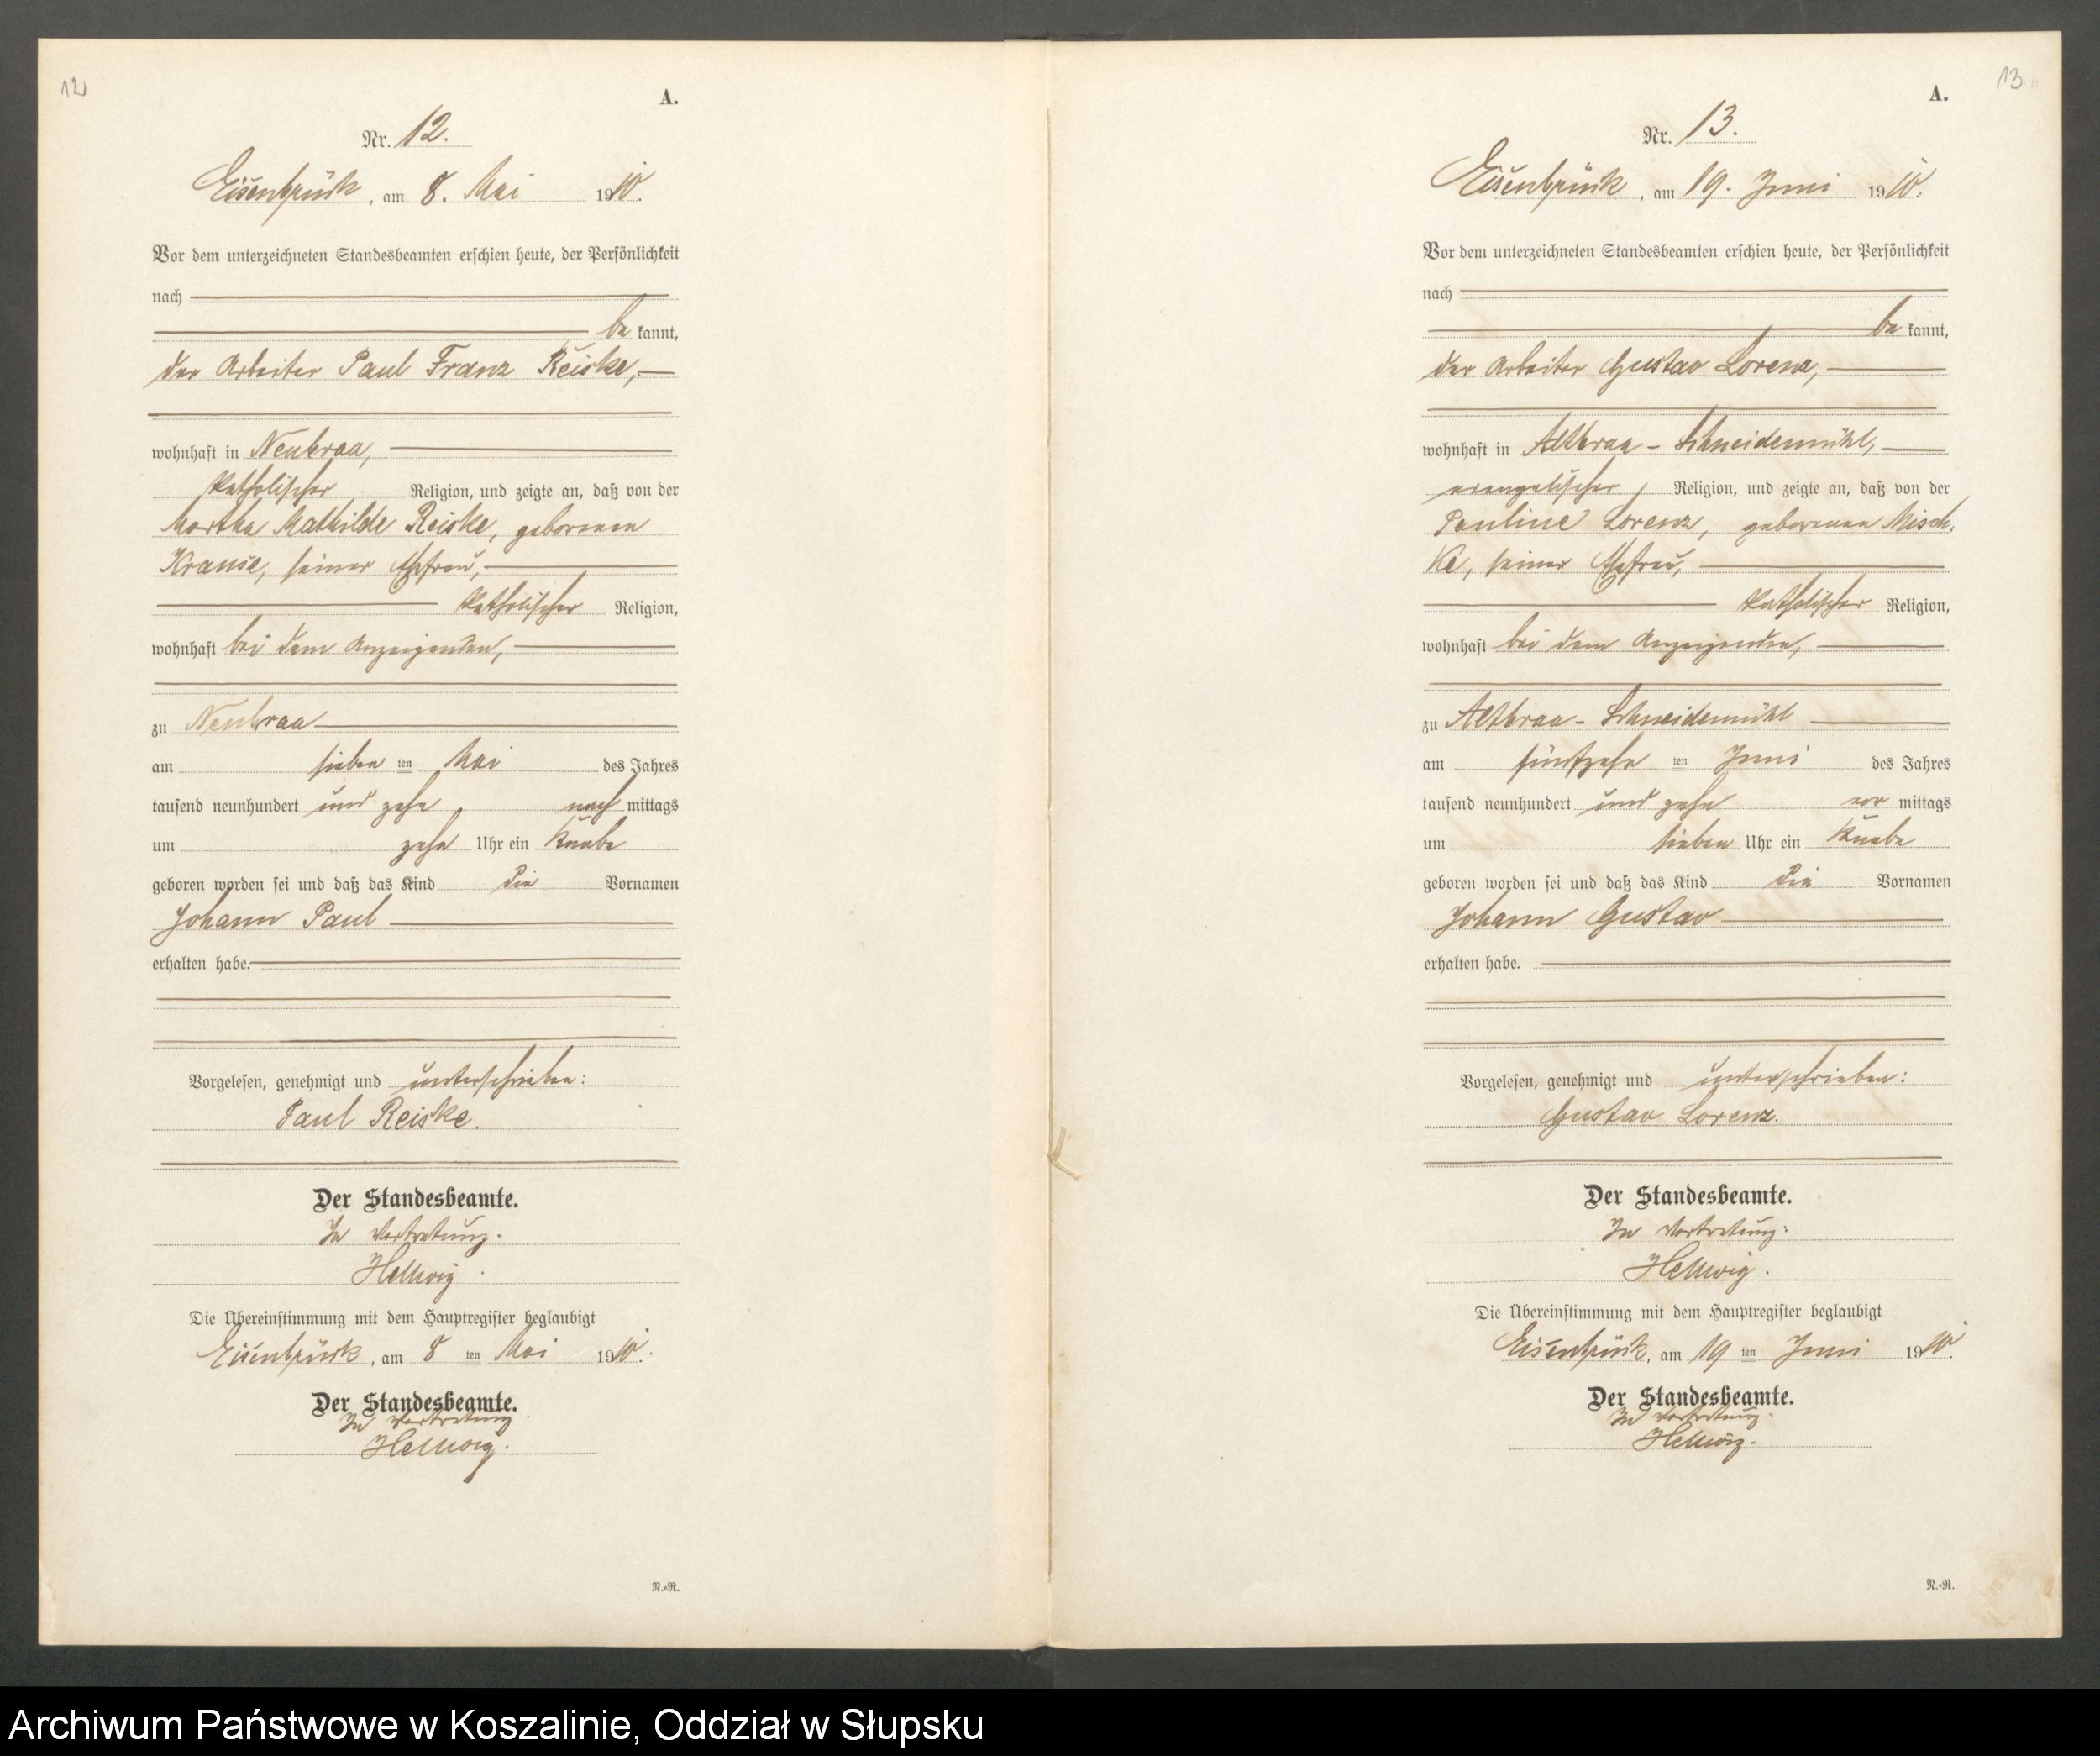 12
A.
Nr. 12.
Eisenbrück, am 8. Mai 1910.
Vor dem unterzeichneten Standesbeamten erschien heute, der Persönlichkeit
nach
be kannt,
der Arbeiter Paul Franz Reiske,
wohnhaft in Neubraa,
katholischer Religion, und zeigte an, daß von der
Martha Mathilde Reiske, geborenen
Krause, seiner Ehefrau,
katholischer Religion,
wohnhaft bei dem Anzeigenden,
zu Neubraa
am sieben ten Mai des Jahres
tausend neunhundert und zehn nach mittags
um zehn Uhr ein Knabe
geboren worden sei und daß das Kind die Vornamen
Johann Paul
erhalten habe.
Vorgelesen, genehmigt und unterschrieben:
Paul Reiske.
Der Standesbeamte.
In Vertretung.
Hellwig.
Die Übereinstimmung mit dem Hauptregister beglaubigt
Eisenbrück, am 8 ten Mai 1910.
Der Standesbeamte.
In Vertretung
Hellwig.
N.-R.
13
A.
Nr. 13.
Eisenbrück, am 19. Juni 1910.
Vor dem unterzeichneten Standesbeamten erschien heute, der Persönlichkeit
nach
be kannt,
der Arbeiter Gustav Lorenz,
wohnhaft in Altbraa-Schneidemühl,
evangelischer Religion, und zeigte an, daß von der
Pauline Lorenz, geborenen Misch-
ke, seiner Ehefrau,
katholischer Religion,
wohnhaft bei dem Anzeigenden,
zu Altbraa-Schneidemühl
am fünfzehn ten Juni des Jahres
tausend neunhundert und zehn vor mittags
um sieben Uhr ein Knabe
geboren worden sei und daß das Kind die Vornamen
Johann Gustav
erhalten habe.
Vorgelesen, genehmigt und unterschrieben:
Gustav Lorenz.
Der Standesbeamte.
In Vertretung:
Hellwig.
Die Übereinstimmung mit dem Hauptregister beglaubigt
Eisenbrück, am 19 ten Juni 1910.
Der Standesbeamte.
In Vertretung.
Hellwig.
N.-R.
Archiwum Państwowe w Koszalinie, Oddział w Słupsku